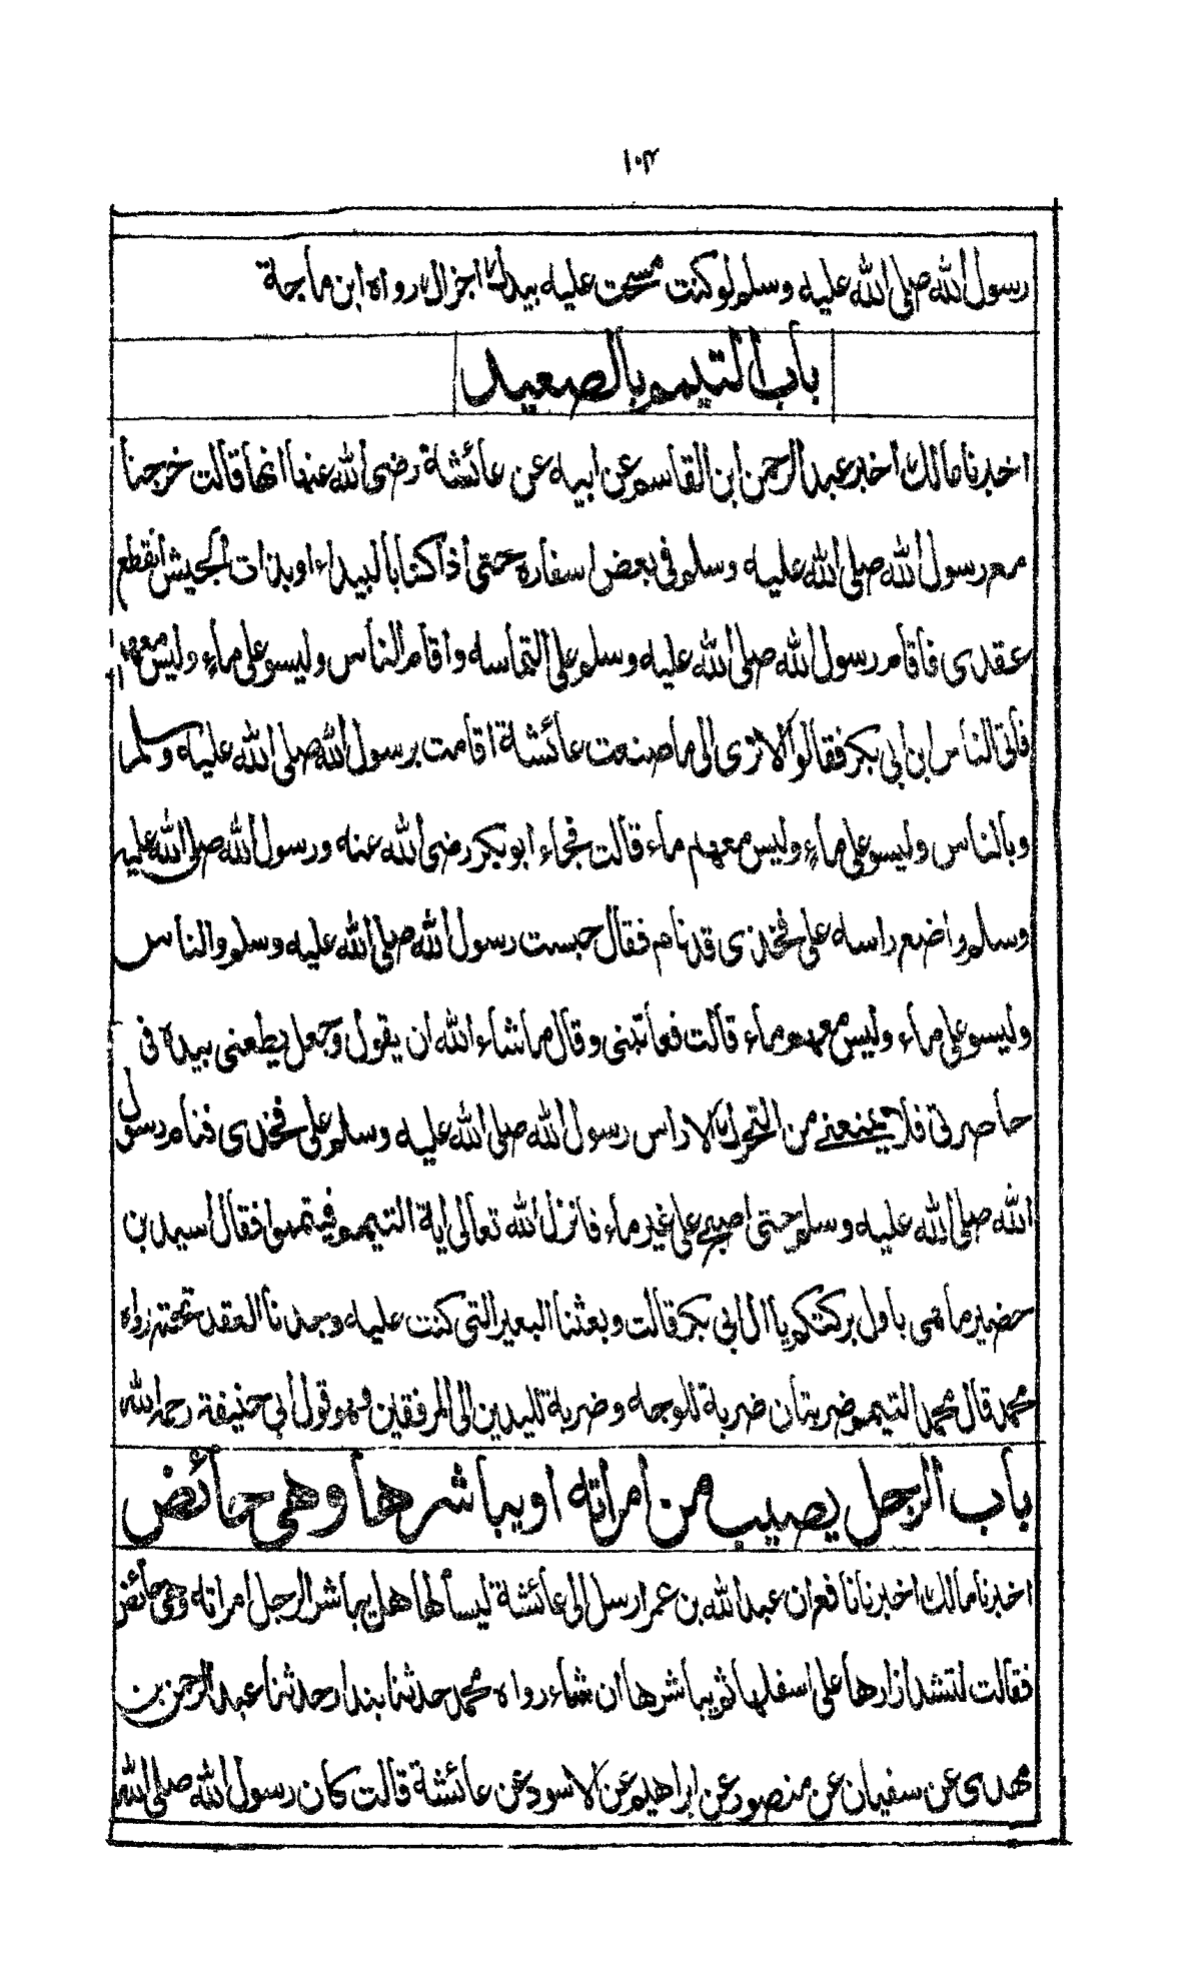 ١٠٣
رسول الله صلى الله عليه وسلم لو كنت مسحت عليه بيدك اجزاك رواه ابن ماجة
باب التيمم بالصعيد
اخبرنا مالك اخبر عبد الرحمن ابن القاسم عن ابيه عن عائشة رضى الله عنها انها قالت خرجنا
مع رسول الله صلى الله عليه وسلم فى بعض اسفاره حتى اذا كنا بالبيداء او بذات الجيش انقطع
عقدى فاقام رسول الله صلى الله عليه وسلم على التماسه واقام الناس وليسو على ماء وليس معهم
فاتى الناس ابن ابى بكر فقالوا الا ترى الى ما صنعت عائشة اقامت برسول الله صلى الله عليه وسلم
وبالناس وليسو على ماء وليس معهم ماء قالت فجاء ابو بكر رضى الله عنه ورسول الله صلى الله عليه
وسلم واضع راسه على فخذى قد نام فقال حبست رسول الله صلى الله عليه وسلم والناس
وليسو على ماء وليس معهم ماء قالت فعاتبنى وقال ما شاء الله ان يقول وجعل يطعنى بيده فى
حاصرتى فلا يمنعنى من التحرك الا راس رسول الله صلى الله عليه وسلم على فخذى فنام رسول
الله صلى الله عليه وسلم حتى اصبح على غير ماء فانزل الله تعالى اية التيمم فيتمموا فقال اسيد بن
حضير ما هى باول بركتكم يا ال ابى بكر قالت وبعثنا البعير التى كنت عليه وجدنا العقد تحته رواه
محمد قال محمد التيمم ضربتان ضربة للوجه وضربة لليدين الى المرفقين وهو قول ابى حنيفة رحمه الله
باب الرجل يصيب من امراته او يباشرها وهى حائض
اخبرنا مالك اخبرنا نافع ان عبد الله بن عمر ارسل الى عائشة ليسألها هل يباشر الرجل امراته وهى حائض
فقالت لتشد ازارها على اسفلها ثم يباشرها ان شاء رواه محمد حدثنا بندار حدثنا عبد الرحمن بن
مهدى عن سفيان عن منصور عن ابراهيم عن الاسود عن عائشة قالت كان رسول الله صلى الله